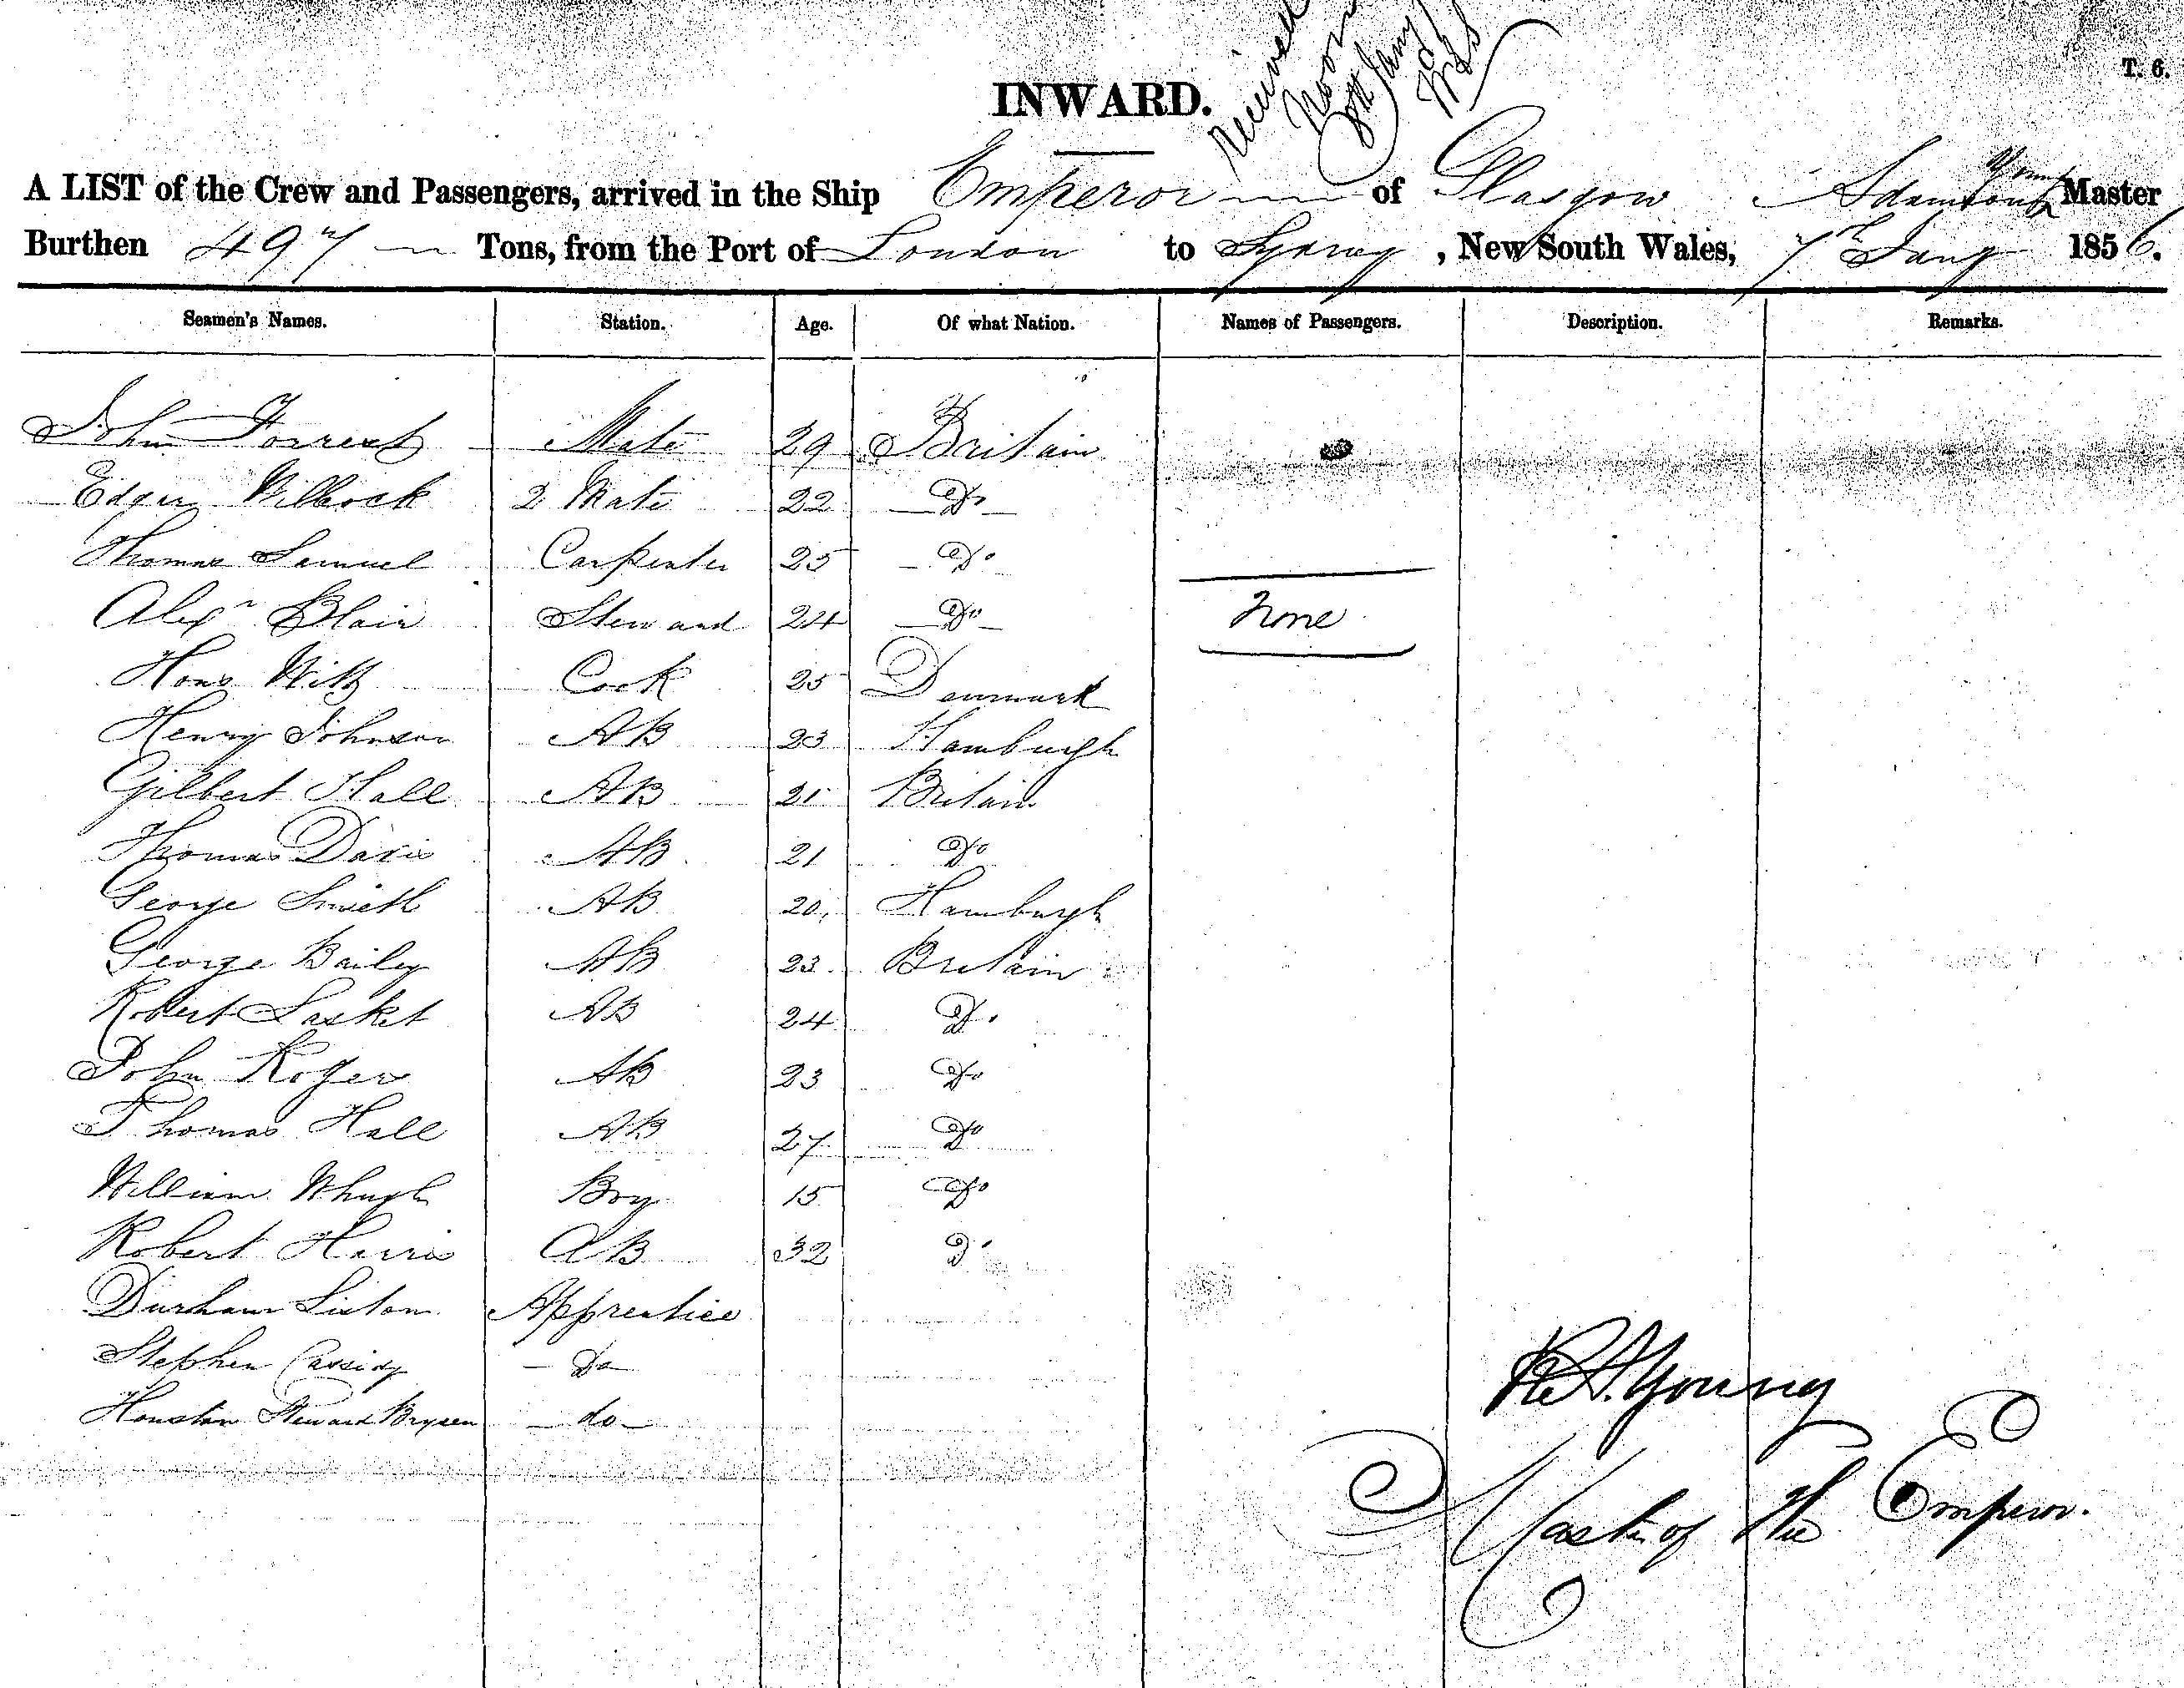 T. 6.
Received
Noon
8th Jany
INWARD.
A LIST of the Crew and Passengers, arrived in the Ship Emperor of Glasgow Adamson Young Master
Burthen 497 Tons, from the Port of London to Sydney, New South Wales, 7th Jany 1856.
Seamen's Names. Station. Age. Of what Nation. Names of Passengers. Description. Remarks.
John Forrest Mate 29 Britain
Edgar 2 Mate 22 Do
Thomas Samuel Carpenter 25 Do
Alexr Blair Steward 24 Do None
Hans Witt Cook 25 Denmark
Henry Johnson AB 23 Hamburgh
Gilbert Hall AB 21 Britain
Thomas Davis AB 21 Do
George Smith AB 20 Hamburgh
George Bailey AB 23 Britain
Robert AB 24 Do
John Roger AB 23 Do
Thomas Hall AB 27 Do
William Boy 15 Do
Robert Harris AB 32 Do
Durham Liston Apprentice
Stephen Cassidy Do
Houston Steward Brysen do
Young
Master of the Emperor.